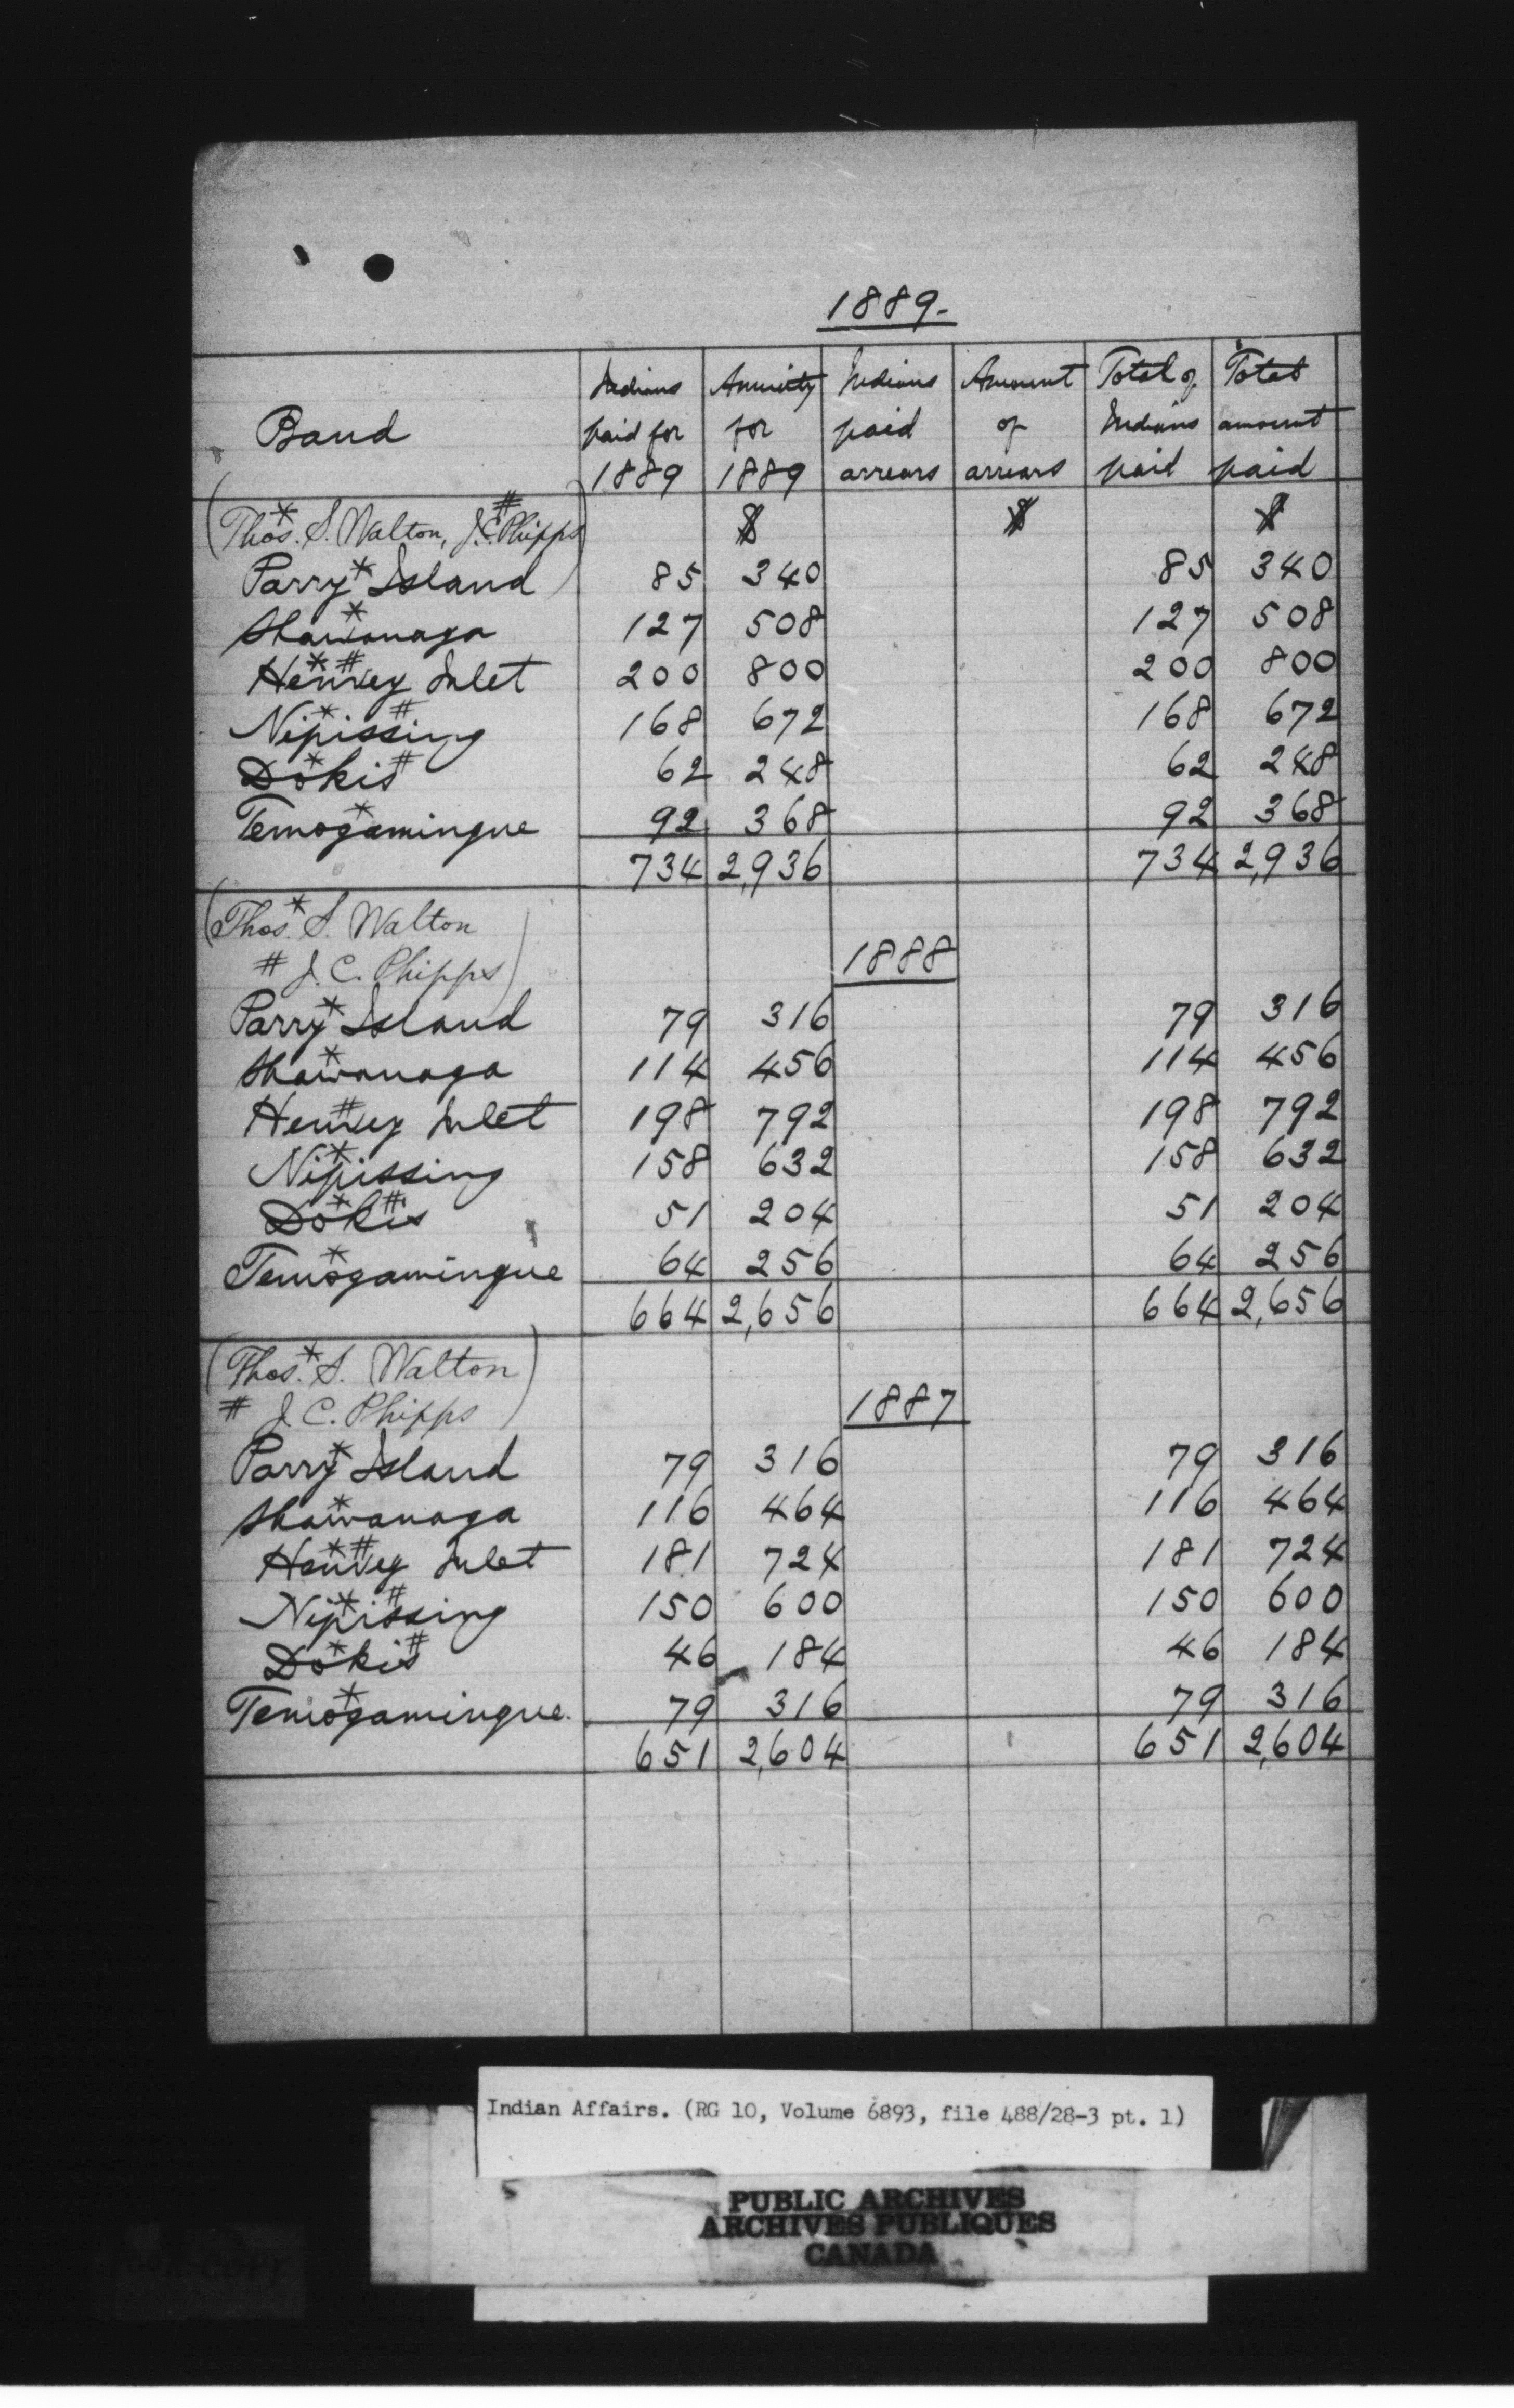 1889.
Band Indians paid for 1889 Annuity for 1889 Indians paid arrears Amount of arrears Total of Indians paid Total amount paid
(Thos.* S. Walton, J.C.# Phipps) $ $ $
Parry* Island 85 340 85 340
Shawanaga* 127 508 127 508
Henvey*# Inlet 200 800 200 800
Nipissing*# 168 672 168 672
Dokis*# 62 248 62 248
Temogamingue* 92 368 92 368
734 2,936 734 2,936
(Thos.* S. Walton
# J. C. Phipps) 1888
Parry* Island 79 316 79 316
Shawanaga* 114 456 114 456
Henvey# Inlet 198 792 198 792
Nipissing* 158 632 158 632
Dokis*# 51 204 51 204
Temogamingue* 64 256 64 256
664 2,656 664 2,656
(Thos.* S. Walton
# J. C. Phipps) 1887
Parry* Island 79 316 79 316
Shawanaga* 116 464 116 464
Henvey*# Inlet 181 724 181 724
Nipissing*# 150 600 150 600
Dokis*# 46 184 46 184
Temogamingue.* 79 316 79 316
651 2,604 651 2,604
Indian Affairs. (RG 10, Volume 6893, file 488/28-3 pt. 1)
PUBLIC ARCHIVES
ARCHIVES PUBLIQUES
CANADA